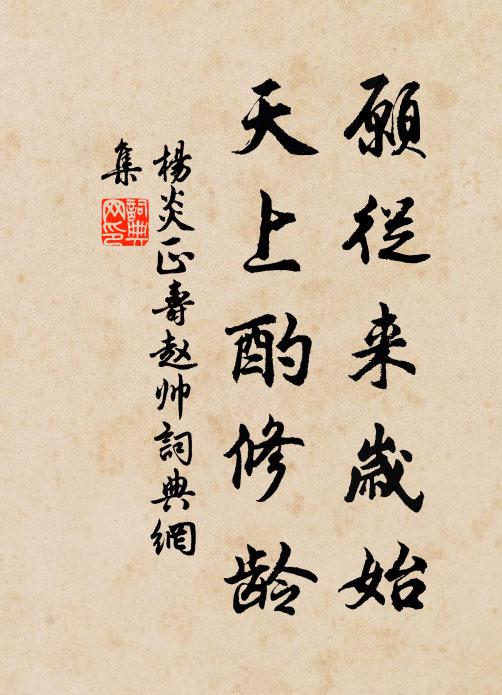 願從来歲始
天上酌修龄
楊炎正壽赵帅詞典網
集
詞典
网印